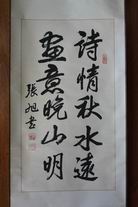 詩情秋水遠
畫意晚山明
張旭書